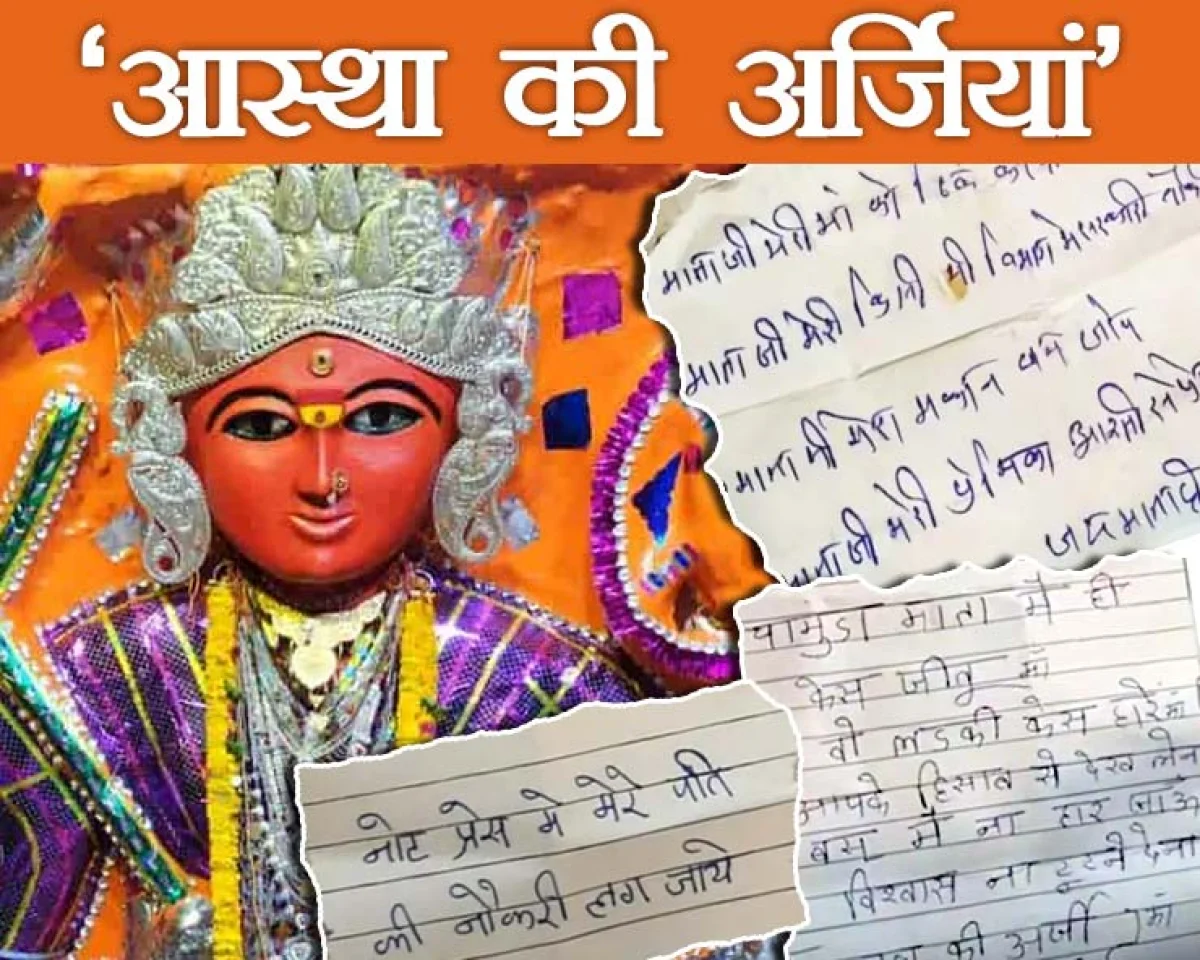 ‘आस्था की अर्जियां’
माता जी मेरी मां को
माता जी मेरी किसी भी विभाग में सरकारी
माता जी मेरा मकान बन जाय
माता जी मेरी प्रेमिका आरती
जय माता दी
चामुंडा माता मै ही
केस जीतू माँ
वो लडकी केस हारे माँ
आपके हिसाब से देख लेना
बस मैं ना हार जाऊ
विश्वास ना टूटने देना
की अर्जी माँ
नोट प्रेस मे मेरे पति
की नौकरी लग जाये